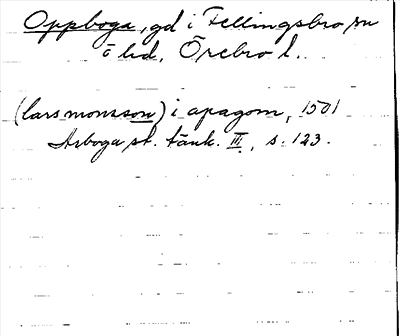 Oppboga, gd i Fellingsbro sn
o hd, Örebro l.
(lars monsson) i apagom, 1501
Arboga st. tänk. III, s. 123.